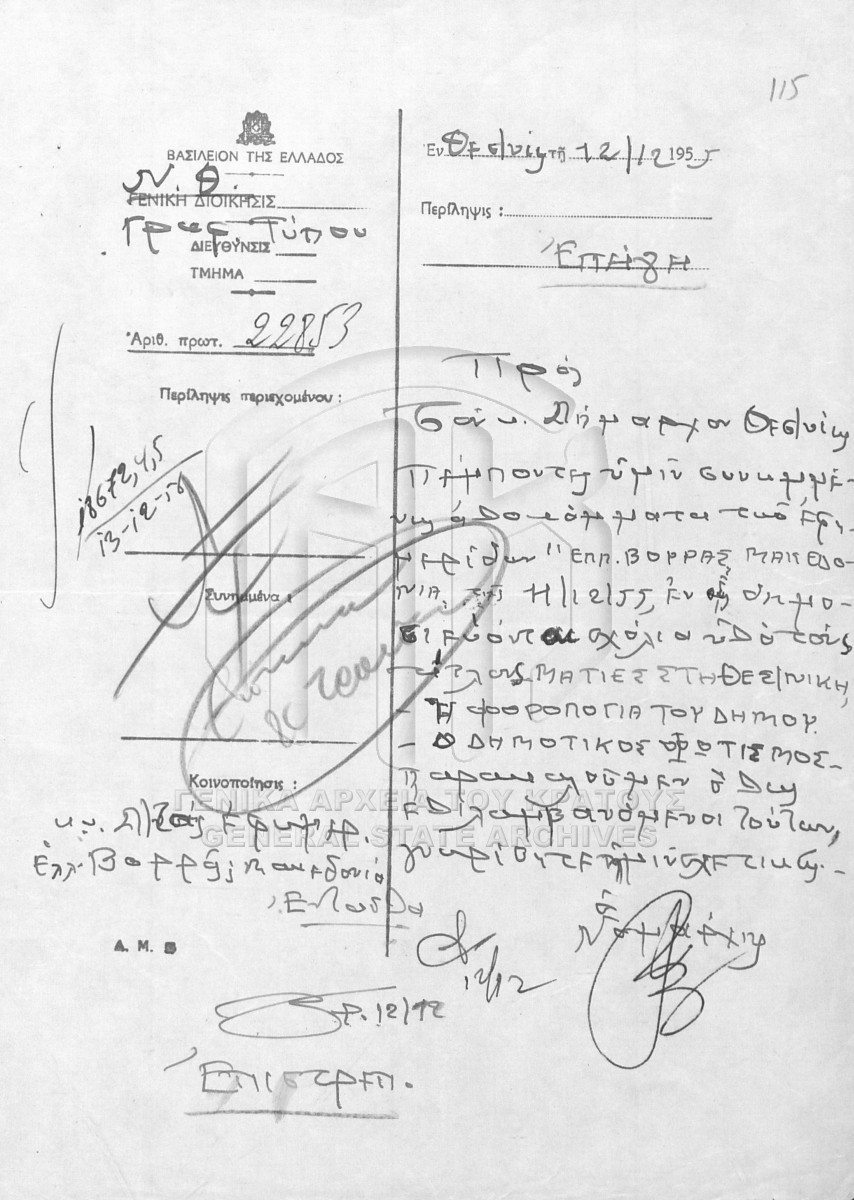 115
ΒΑΣΙΛΕΙΟΝ ΤΗΣ ΕΛΛΑΔΟΣ
Ν. Θ.
ΓΕΝΙΚΗ ΔΙΟΙΚΗΣΙΣ
Γραφ Τύπου
ΔΙΕΥΘΥΝΣΙΣ
ΤΜΗΜΑ
Ἀριθ. πρωτ. 22853
Περίληψις περιεχομένου :
18672,4,5
13-12-
Συνημμένα :
Κοινοποίησις :
Ἑλλ. Βορρᾶς Μακεδονία
Ἐνταῦθα
Δ. Μ.
Ἐν Θεσ/νίκῃ τῇ 12/12 1955
Περίληψις :
Ἐπείγει
Πρός
Τόν κ. Δήμαρχον Θεσ/νίκης
Πέμποντες ὑμῖν συνημμέ-
νως ἀποκόμματα τῶν ἐφη-
μερίδων "ΕΛΛ. ΒΟΡΡΑΣ, ΜΑΚΕΔΟ-
ΝΙΑ, τῆς 11/12/55, ἐν οἷς δημο-
σιεύονται σχόλια ὑπό τούς
τίτλους ΜΑΤΙΕΣ ΣΤΗ ΘΕΣ/ΝΙΚΗ,
- Η ΦΟΡΟΛΟΓΙΑ ΤΟΥ ΔΗΜΟΥ.
- Ο ΔΗΜΟΤΙΚΟΣ ΦΩΤΙΣΜΟΣ -
παρακαλοῦμεν ὅπως
ἐπιλαμβανόμενοι τούτων,
γνωρίσητε ἡμῖν σχετικῶς. -
ὁ
Νομάρχης
12/12
12/12
Ἐπιστρεπ.
ΓΕΝΙΚΑ ΑΡΧΕΙΑ ΤΟΥ ΚΡΑΤΟΥΣ
GENERAL STATE ARCHIVES